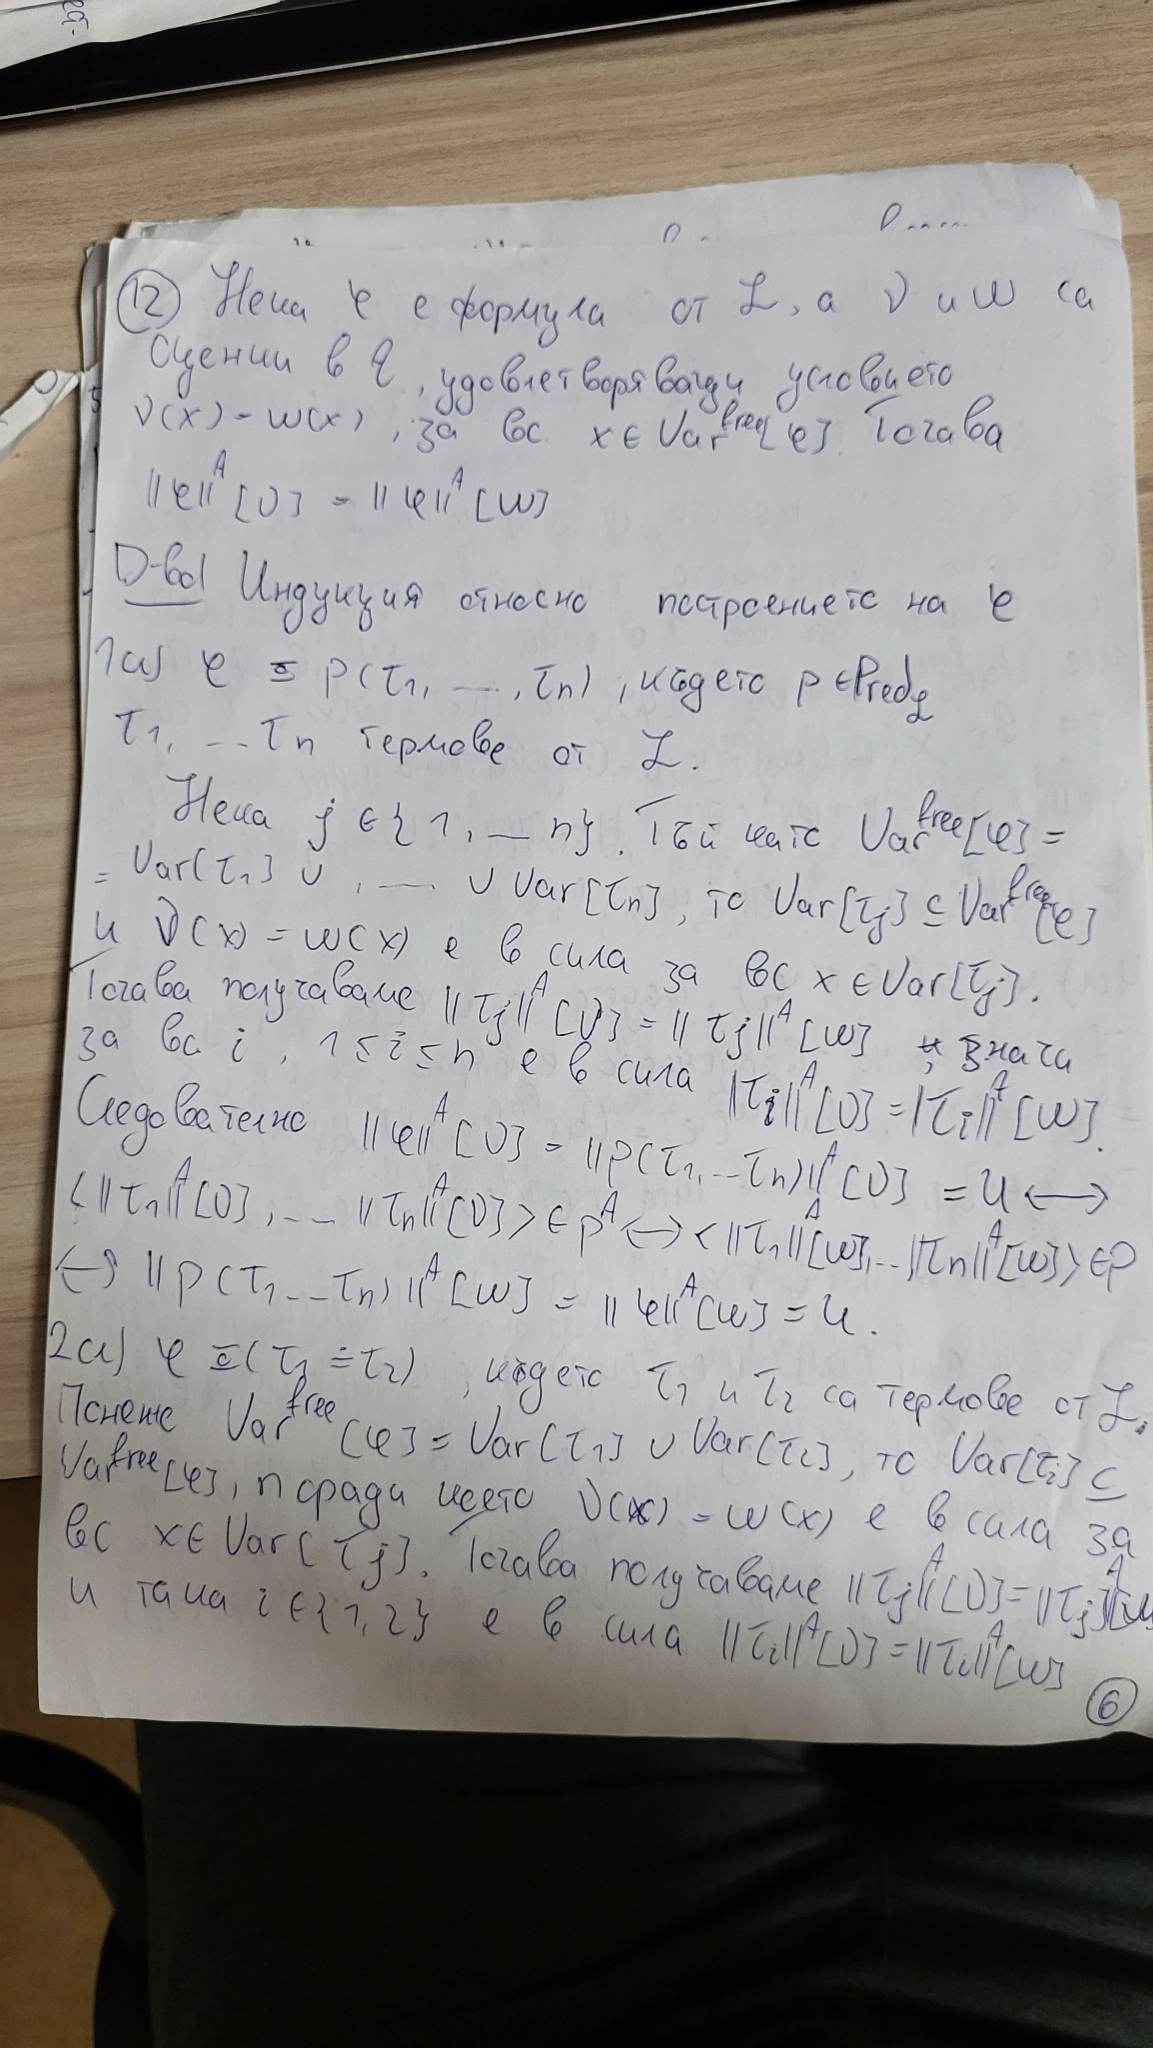 (12) Нека φ е формула от L, а υ и w са
оценки в A, удовлетворяващи условието
υ(x) = w(x), за вс. x ∈ Var^free[φ]. Тогава
||φ||^A [υ] = ||φ||^A [w]
D-во Индукция относно построението на φ
1а) φ ≡ p(τ1, ..., τn), където p ∈ Pred_L
τ1, ... τn термове от L.
Нека j ∈ {1, ... n}. Тъй като Var^free[φ] =
= Var[τ1] ∪, ... ∪ Var[τn], то Var[τj] ⊆ Var^free[φ]
и υ(x) = w(x) е в сила за вс x ∈ Var[τj].
Тогава получаваме ||τj||^A [υ] = ||τj||^A [w], значи
за вс. i, 1 ≤ i ≤ n е в сила ||τi||^A [υ] = ||τi||^A [w].
Следователно ||φ||^A [υ] = ||p(τ1, ... τn)||^A [υ] = И ⟷
<||τ1||^A [υ], ... ||τn||^A [υ]> ∈ p^A ⟷ <||τ1||^A [w], ... ||τn||^A [w]> ∈ p
⟷ ||p(τ1 ... τn)||^A [w] = ||φ||^A [w] = И.
2а) φ ≡ (τ1 ≐ τ2), където τ1 и τ2 са термове от L.
Понеже Var^free [φ] = Var[τ1] ∪ Var[τ2], то Var[τi] ⊆
Var^free[φ], поради което υ(x) = w(x) е в сила за
вс x ∈ Var[τj]. Тогава получаваме ||τj||^A [υ] = ||τj||^A [w]
и така i ∈ {1, 2} е в сила ||τi||^A [υ] = ||τi||^A [w]
(6)